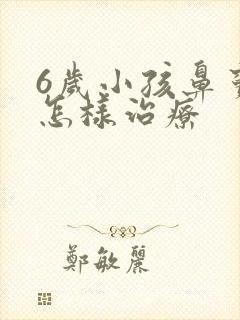 6歲小孩鼻
怎樣治療
鄭敏麗